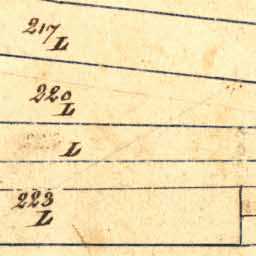 217
L
220
L
L
223
L